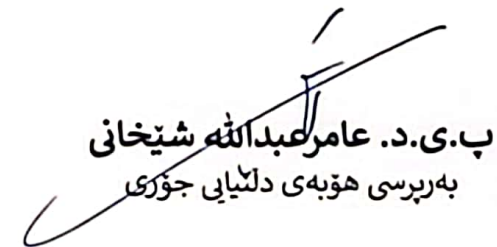 پ.ی.د. عامرعبدالله شێخانی
بەرپرسی هۆبەی دڵنیایی جۆری